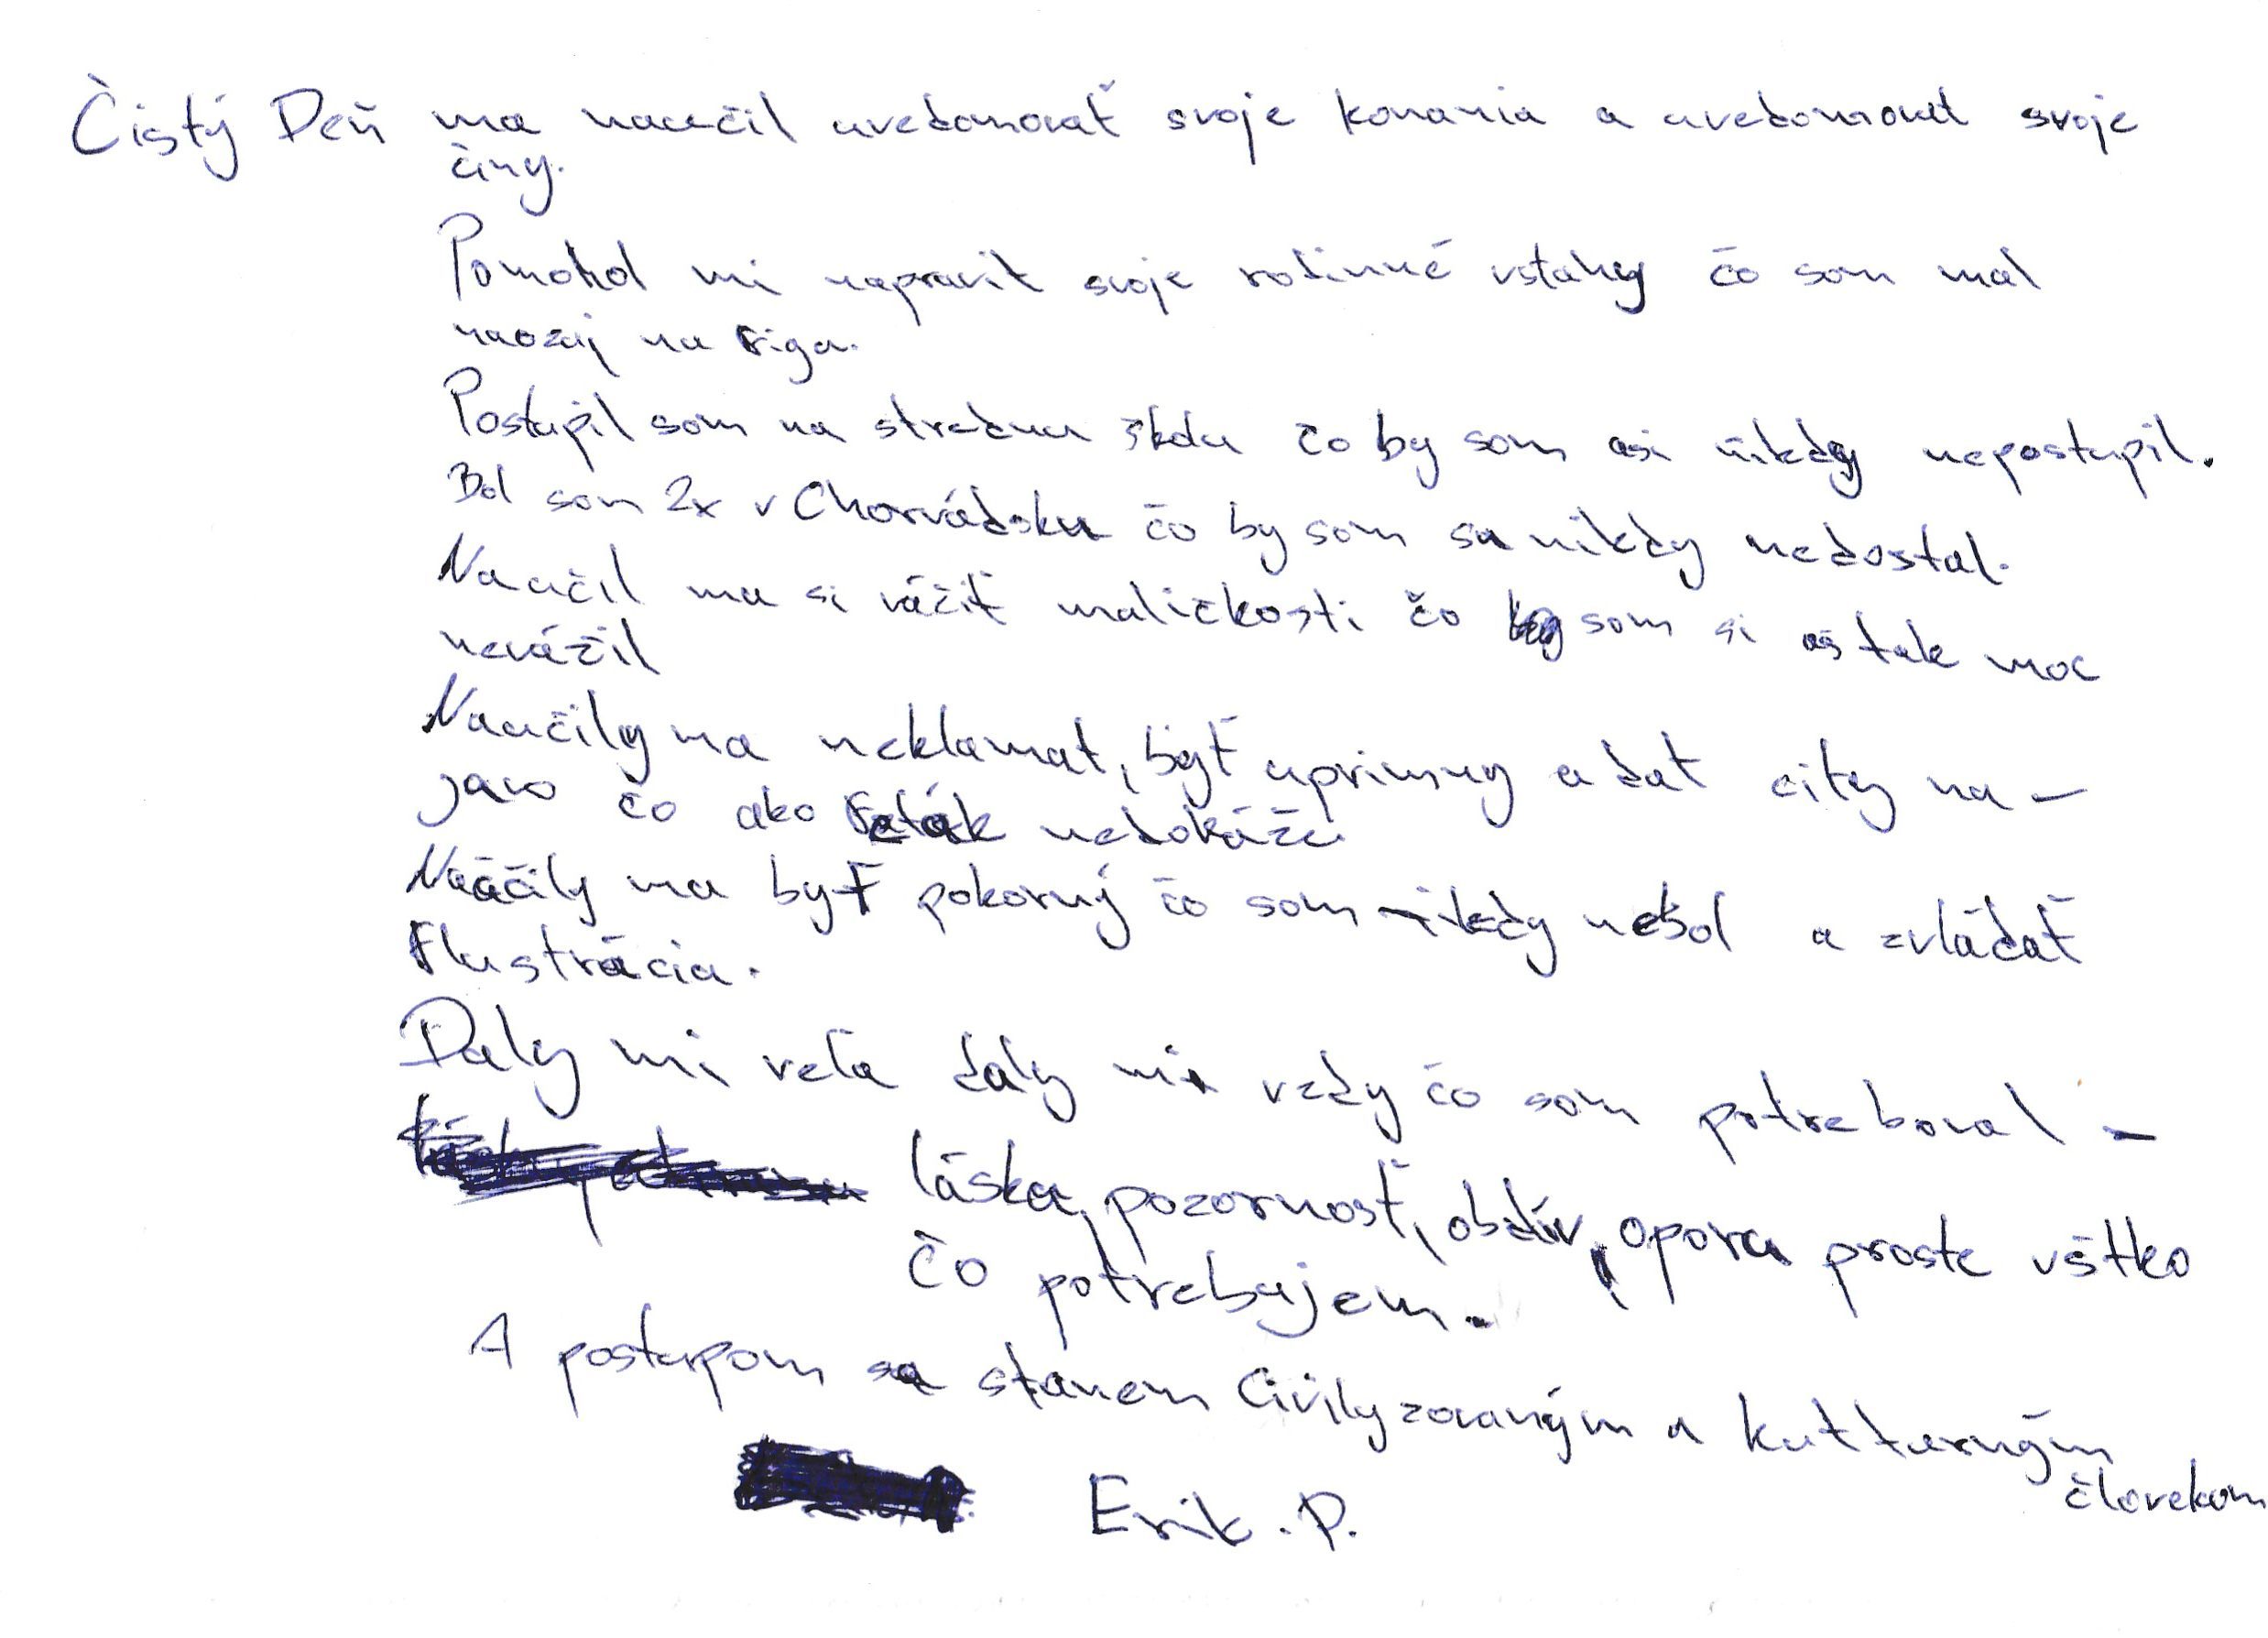 Čistý Deň ma naučil uvedomovať svoje konania a uvedomovat svoje
činy.
Pomohol mi napravit svoje rodinné vstahy čo som mal
naozaj na
Postupil som na strednu školu čo by som asi nikdy nepostupil.
Bol som 2x v Chorvádsku čo by som sa nikdy nedostal.
Naučil ma si vážiť maličkosti čo by som si aš tak moc
nevážil
Naučily ma neklamat, byť uprimny a dat city na-
javo čo ako nedokáže
Náučily ma byť pokorný čo som nikdy nebol a zvládať
Flustrácia.
Daly mi veľa daly mi vzdy čo som potreboval -
láska, pozornosť, obdiv, opora proste vštko
čo potrebujem.
A postupom sa stanem Civilyzovaným a kultturným
človekom
Erik. P.